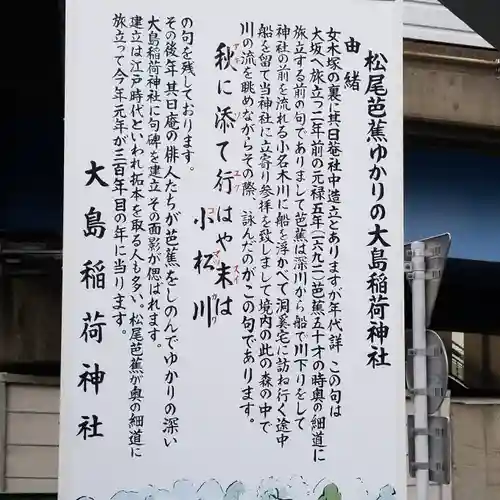 松尾芭蕉ゆかりの大島稲荷神社
由緒
女木塚の裏に其日菴社中造立とありますが年代詳 この句は
大坂へ旅立つ二年前の元禄五年(一六九二)芭蕉五十才の時奥の細道に
旅立する前の句でありまして芭蕉は深川から船で川下りをして
神社の前を流れる小名木川に船を浮かべて洞奚宅に訪ね行く途中
船を留て当神社に立寄り参拝を致しまして境内の此の森の中で
川の流を眺めながらその際 詠んだのがこの句であります。
秋に添て行はや末は
小松川
の句を残しております。
その後年其日庵の俳人たちが芭蕉をしのんでゆかりの深い
大島稲荷神社に句碑を建立 その面影が偲ばれます。
建立は江戸時代といわれ拓本を取る人も多い。松尾芭蕉が奥の細道に
旅立って今年元年が三百年目の年に当ります。
大島稲荷神社